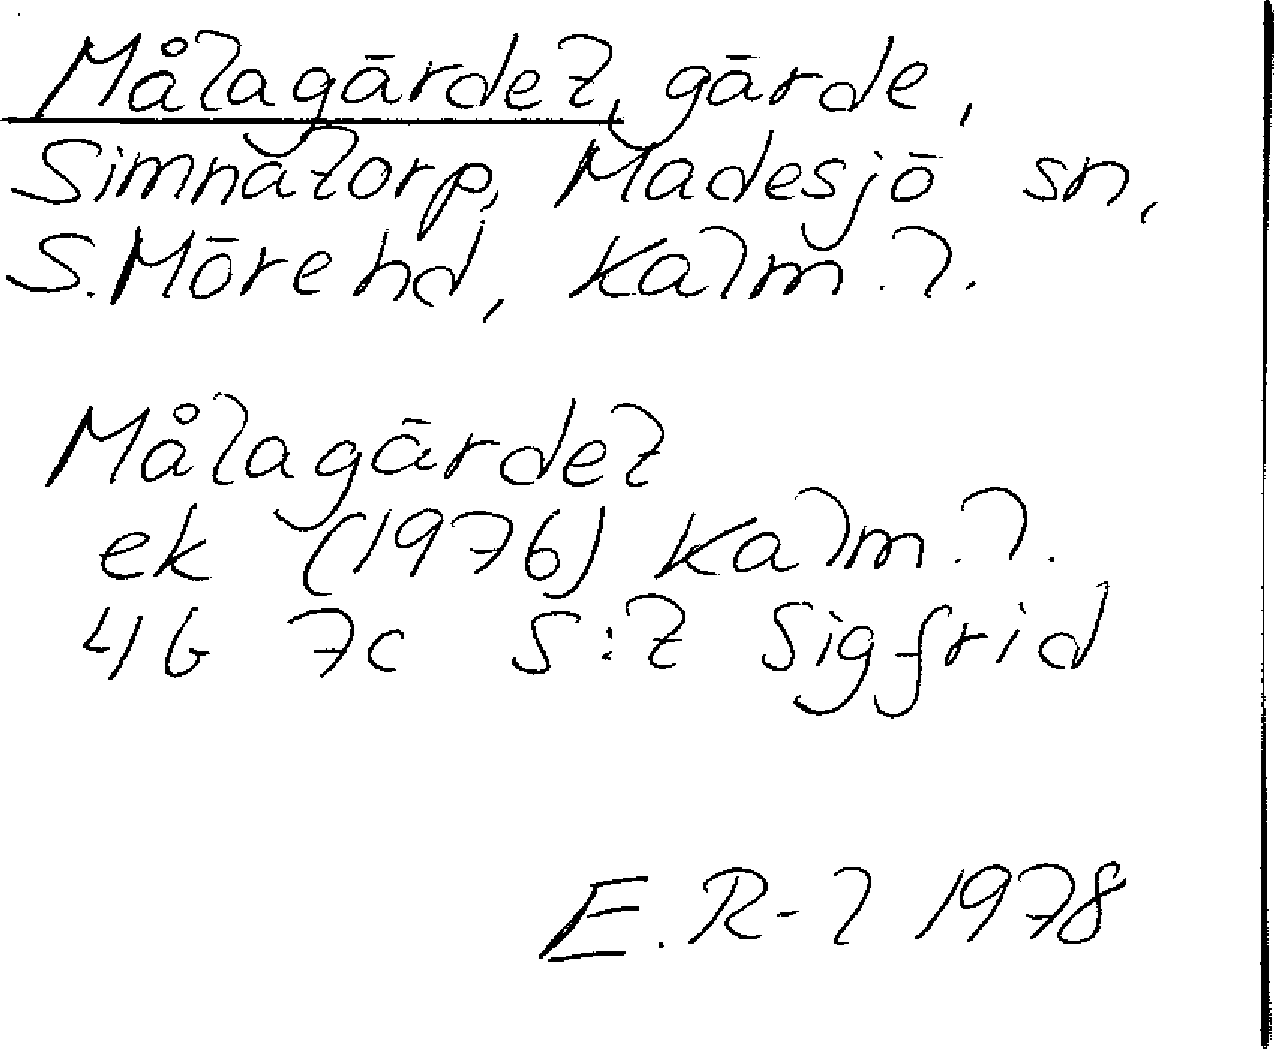 Målagärdet, gärde,
Simnatorp, Madesjö sn,
S. Möre hd, Kalm. l.
Målagärdet
ek (1976) Kalm. l.
4G 7c S:t Sigfrid
E. R-l 1978